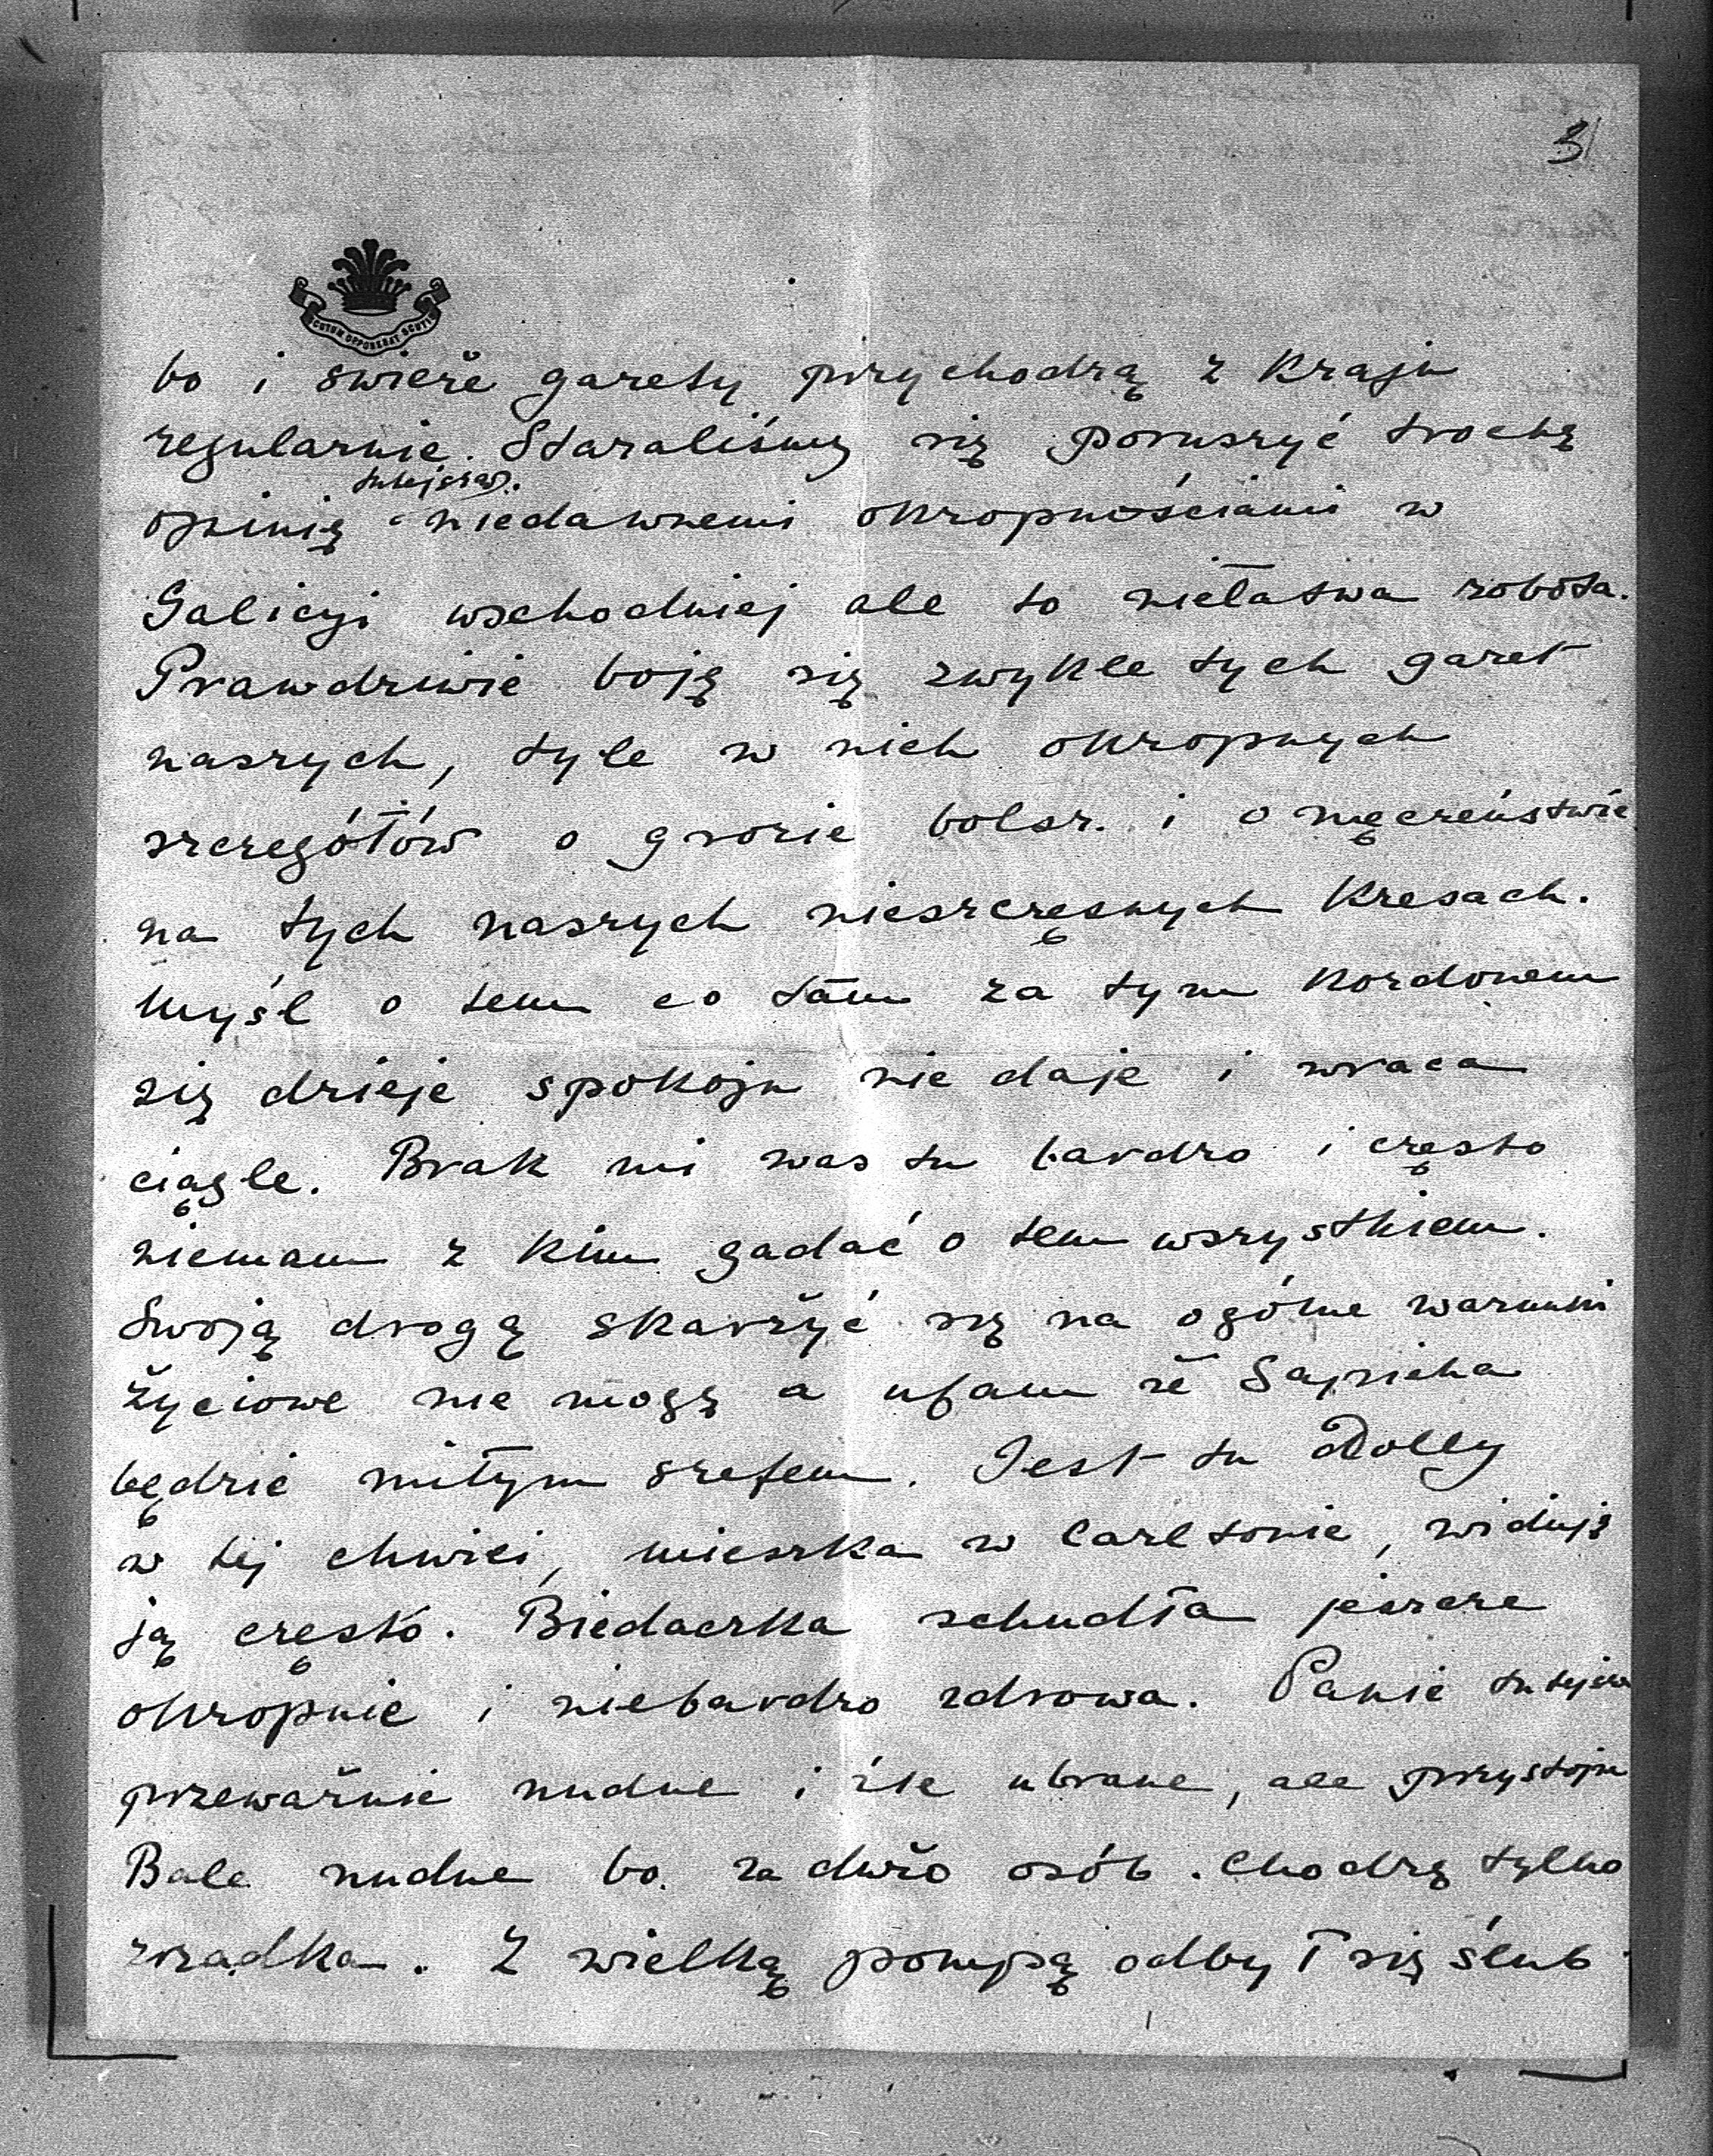 3
SCUTUM OPPONEBAT SCUTIS
bo i świeże gazety przychodzą z Kraju
regularnie. Staraliśmy się poruszyć trochę
tutejszą
opinię niedawnemi okropnościami w
Galicyi wschodniej ale to niełatwa robota.
Prawdziwie boję się zwykle tych gazet
naszych, tyle w nich okropnych
szczegółów o grozie bolsz. i o męczeństwie
na tych naszych nieszczęsnych Kresach.
Myśl o tem co tam za tym Kordonem
się dzieje spokoju nie daje i wraca
ciągle. Brak mi was tu bardzo i często
niemam z kim gadać o tem wszystkiem.
Swoją drogą skarżyć się na ogólne warunki
życiowe nie mogę a ufam że Sapieha
będzie miłym szefem. Jest tu Dolly
w tej chwili, mieszka w Carltonie, widuję
ją często. Biedaczka schudła jeszcze
okropnie i niebardzo zdrowa. Panie tutejsze
przeważnie nudne i źle ubrane, ale przystojn
Bale nudne bo za dużo osób. Chodzę tylko
zrzadka. Z wielką pompą odbył się ślub